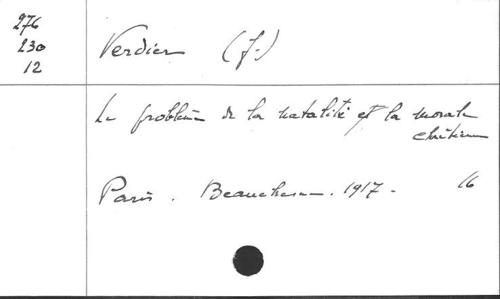 276
230
12
Verdier (J.)
Le problème de la natalité et la morale
chrétienne
Paris. Beauchesne. 1917 - 16